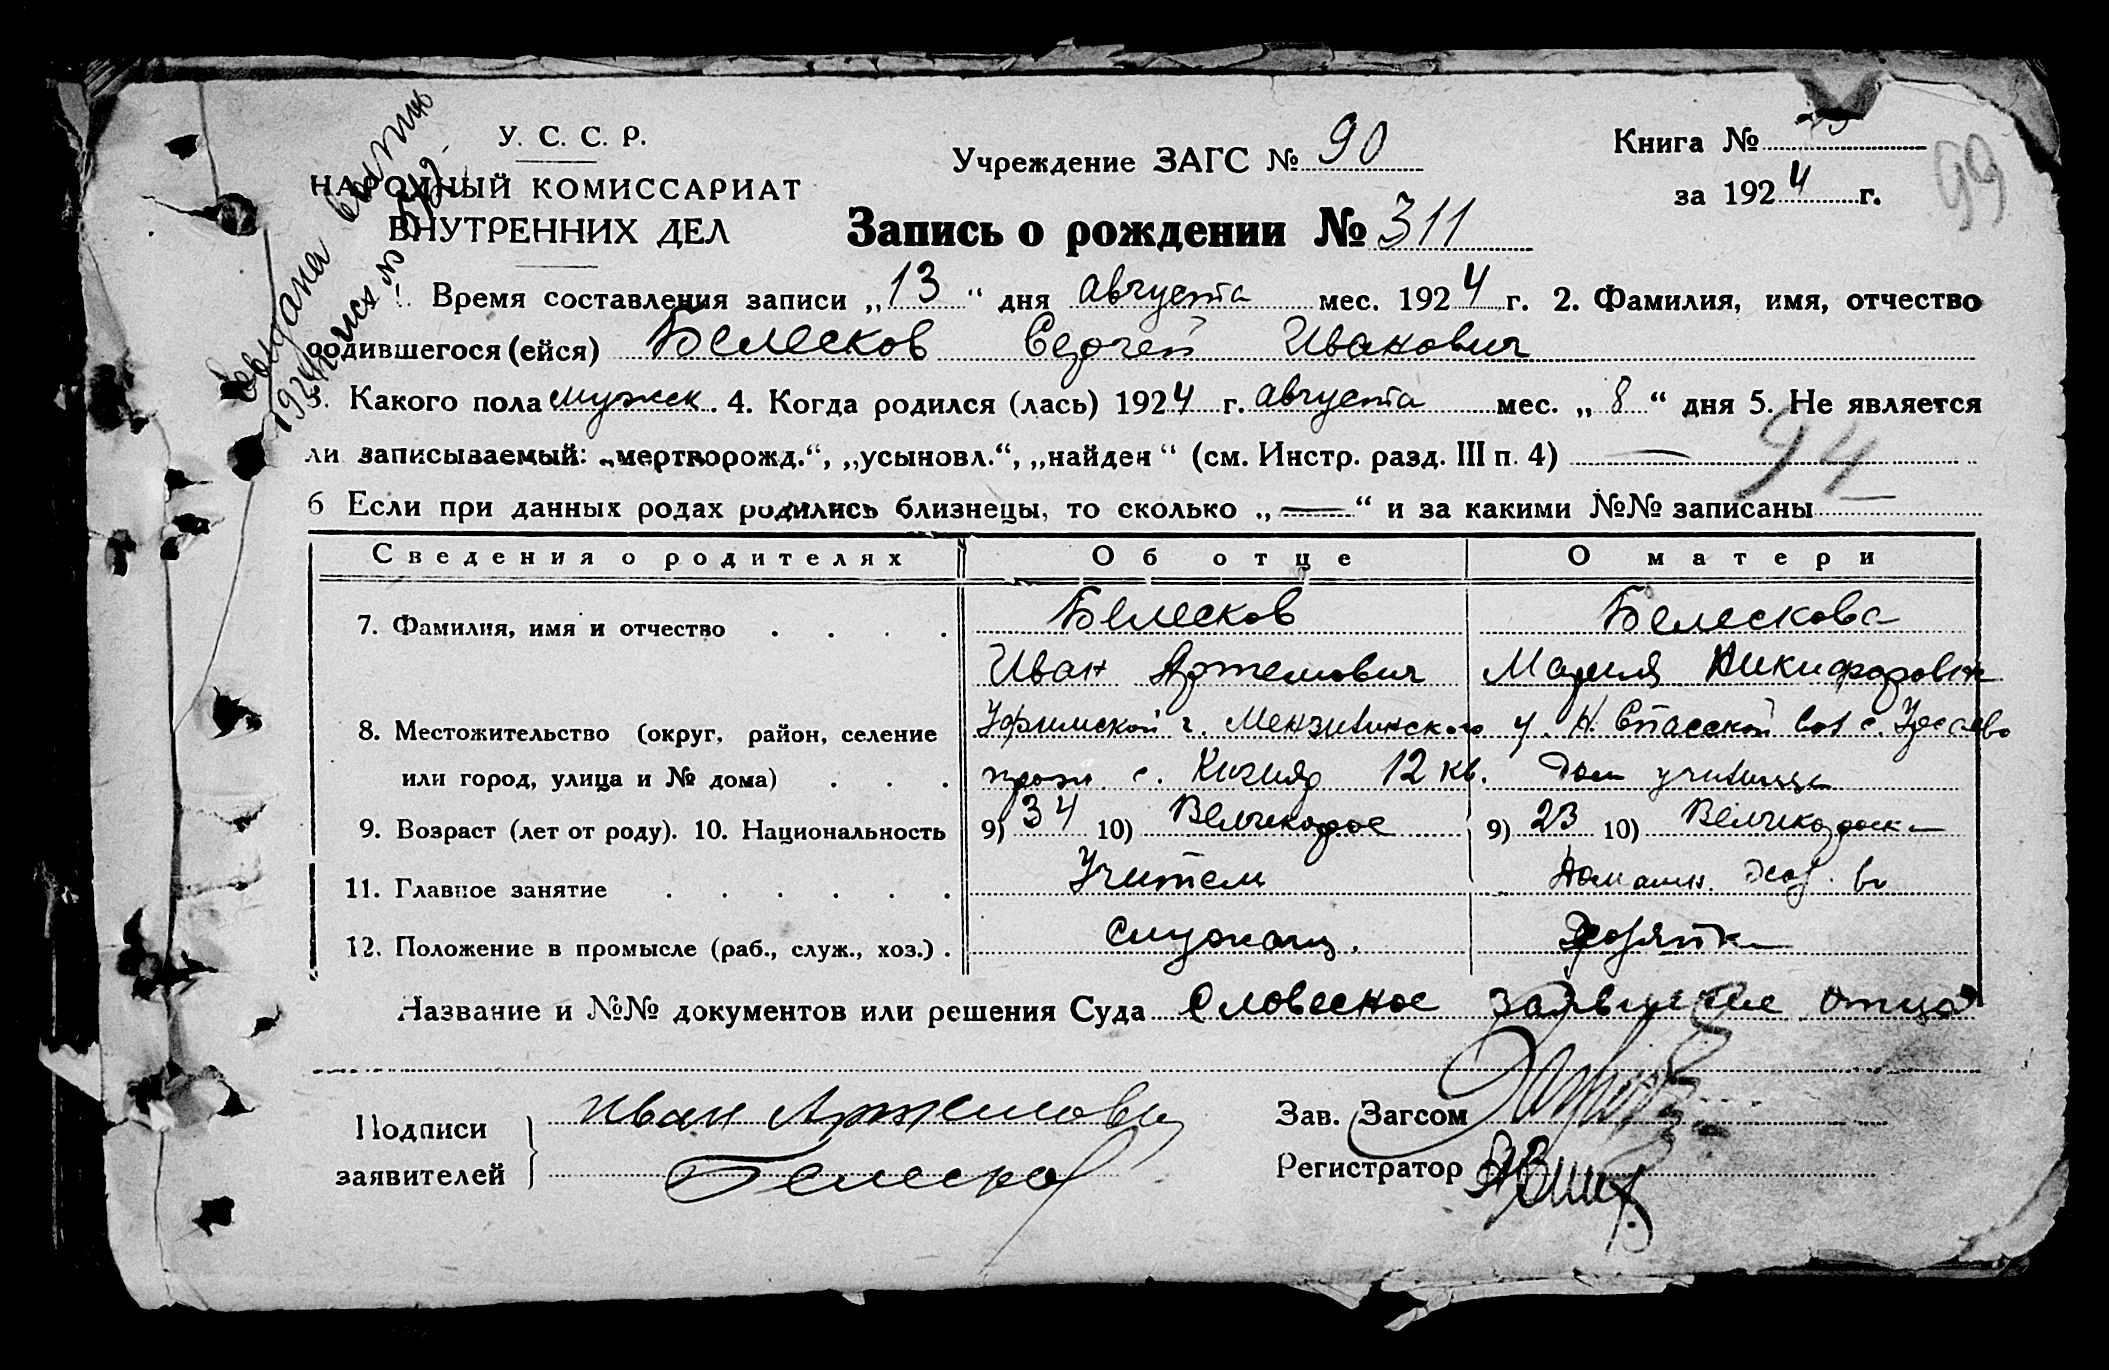 выдана выпись
1924
У. С. С. Р.
НАРОДНЫЙ КОМИССАРИАТ
ВНУТРЕННИХ ДЕЛ
Учреждение ЗАГС № 90
Книга №
за 1924 г.
99
Запись о рождении № 311
1. Время составления записи „13“ дня августа мес. 1924 г. 2. Фамилия, имя, отчество
родившегося (ейся) Белесков Сергей Иванович
3. Какого пола мужск. 4. Когда родился (лась) 1924 г. августа мес. „8“ дня 5. Не является
ли записываемый: „мертворожд.“, „усыновл.“, „найден“ (см. Инстр. разд. III п. 4) —
94
6 Если при данных родах родились близнецы, то сколько „—“ и за какими №№ записаны —
Сведения о родителях Об отце О матери
7. Фамилия, имя и отчество . . . . Белесков Белескова
Иван Артемович Мария Никифоровн
8. Местожительство (округ, район, селение Уфимской г. Мензилинского у. Н. Спасской вол с.
или город, улица и № дома) . . . прож с. 12 кв. Дом училища
9. Возраст (лет от роду). 10. Национальность 9) 34 10) Великорос 9) 23 10) Великороска
11. Главное занятие . . . . . . Учитель Домашн. хоз. во
12. Положение в промысле (раб., служ., хоз.) . Служащ. Хозяйка
Название и №№ документов или решения Суда Словесное заявление отца
Подписи
заявителей
Иван Артемович
Белесков
Зав. Загсом
Регистратор